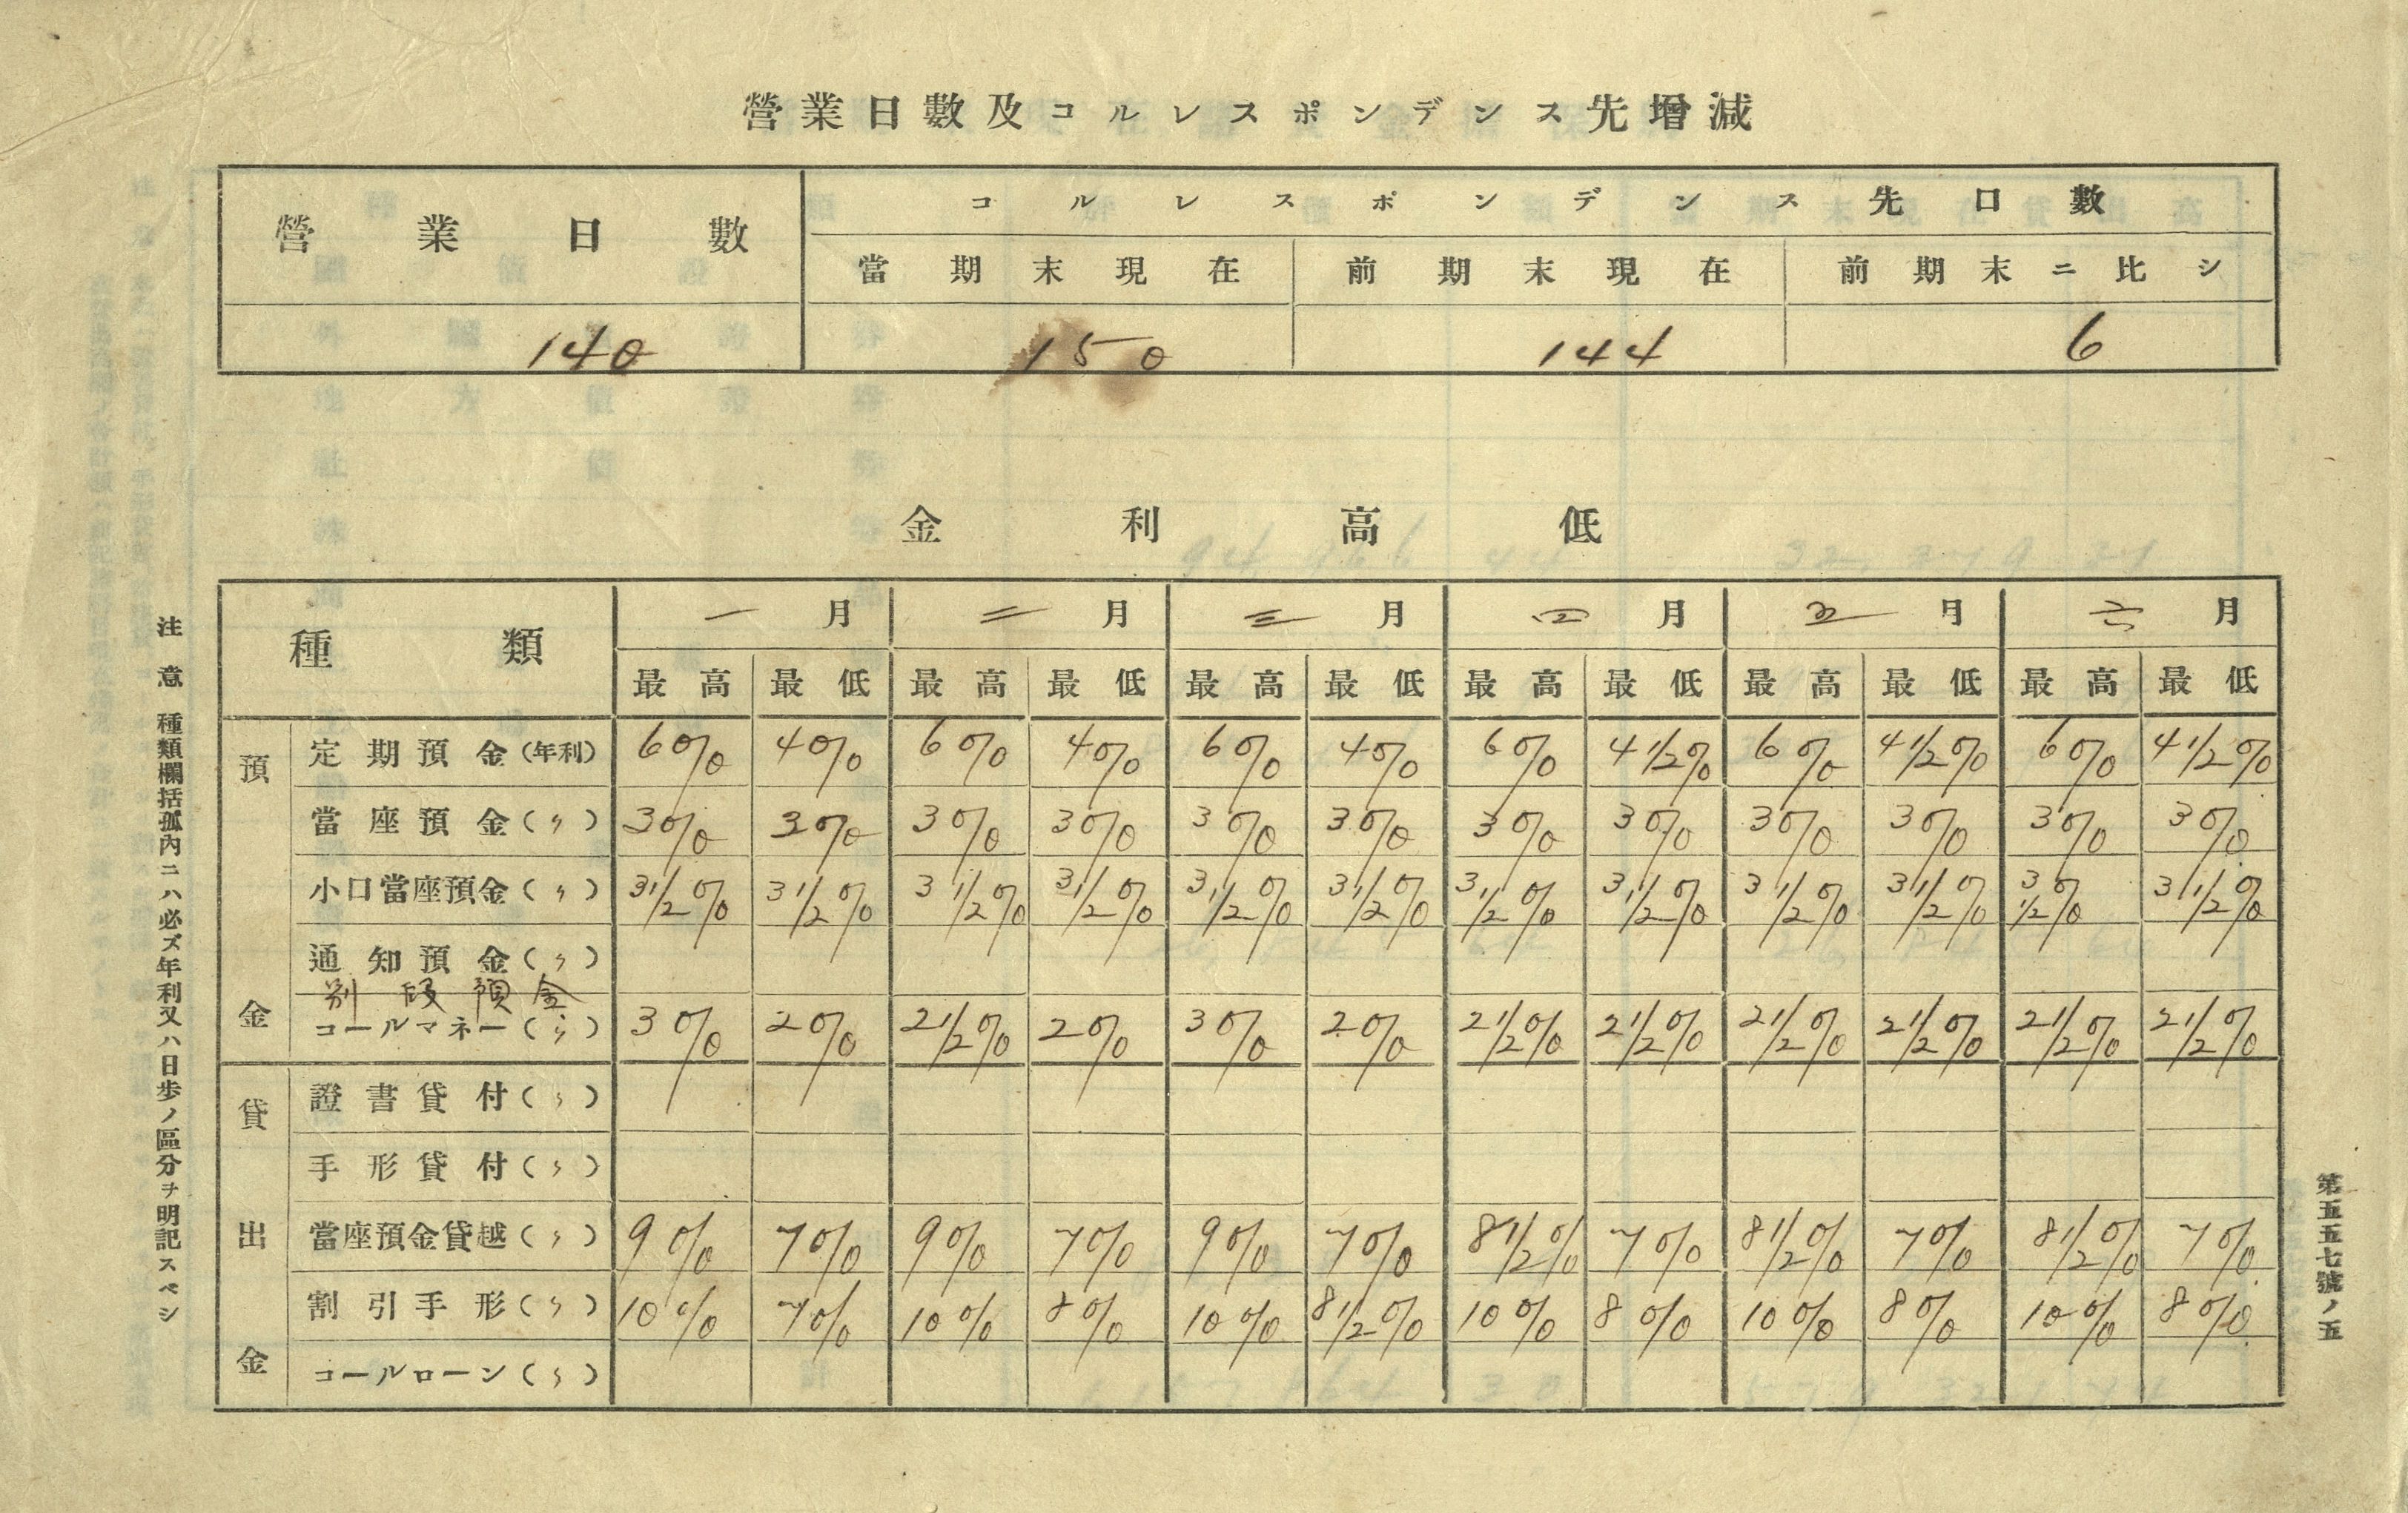 營業日數及コルレスポンデンス先增減
營業日數
コルレスポンデンス先口數
當期末現在 前期末現在 前期末ニ比シ
140 150 144 6
金利高低
種類 一月 二月 三月 四月 五月 六月
最高 最低 最高 最低 最高 最低 最高 最低 最高 最低 最高 最低
預金
定期預金(年利) 6% 4% 6% 4% 6% 4% 6% 4 1/2% 6% 4 1/2% 6% 4 1/2%
當座預金(〃) 3% 3% 3% 3% 3% 3% 3% 3% 3% 3% 3% 3%
小口當座預金(〃) 3 1/2% 3 1/2% 3 1/2% 3 1/2% 3 1/2% 3 1/2% 3 1/2% 3 1/2% 3 1/2% 3 1/2% 3 1/2% 3 1/2%
通知預金(〃)
別段預金
コールマネー(〃) 3% 2% 2 1/2% 2% 3% 2% 2 1/2% 2 1/2% 2 1/2% 2 1/2% 2 1/2% 2 1/2%
貸出金
證書貸付(〃)
手形貸付(〃)
當座預金貸越(〃) 9% 7% 9% 7% 9% 7% 8 1/2% 7% 8 1/2% 7% 8 1/2% 7%
割引手形(〃) 10% 7% 10% 8% 10% 8 1/2% 10% 8% 10% 8% 10% 8%
コールローン(〃)
第五五七號ノ五
注意 種類欄括孤內ニハ必ズ年利又ハ日歩ノ區分ヲ明記スベシ